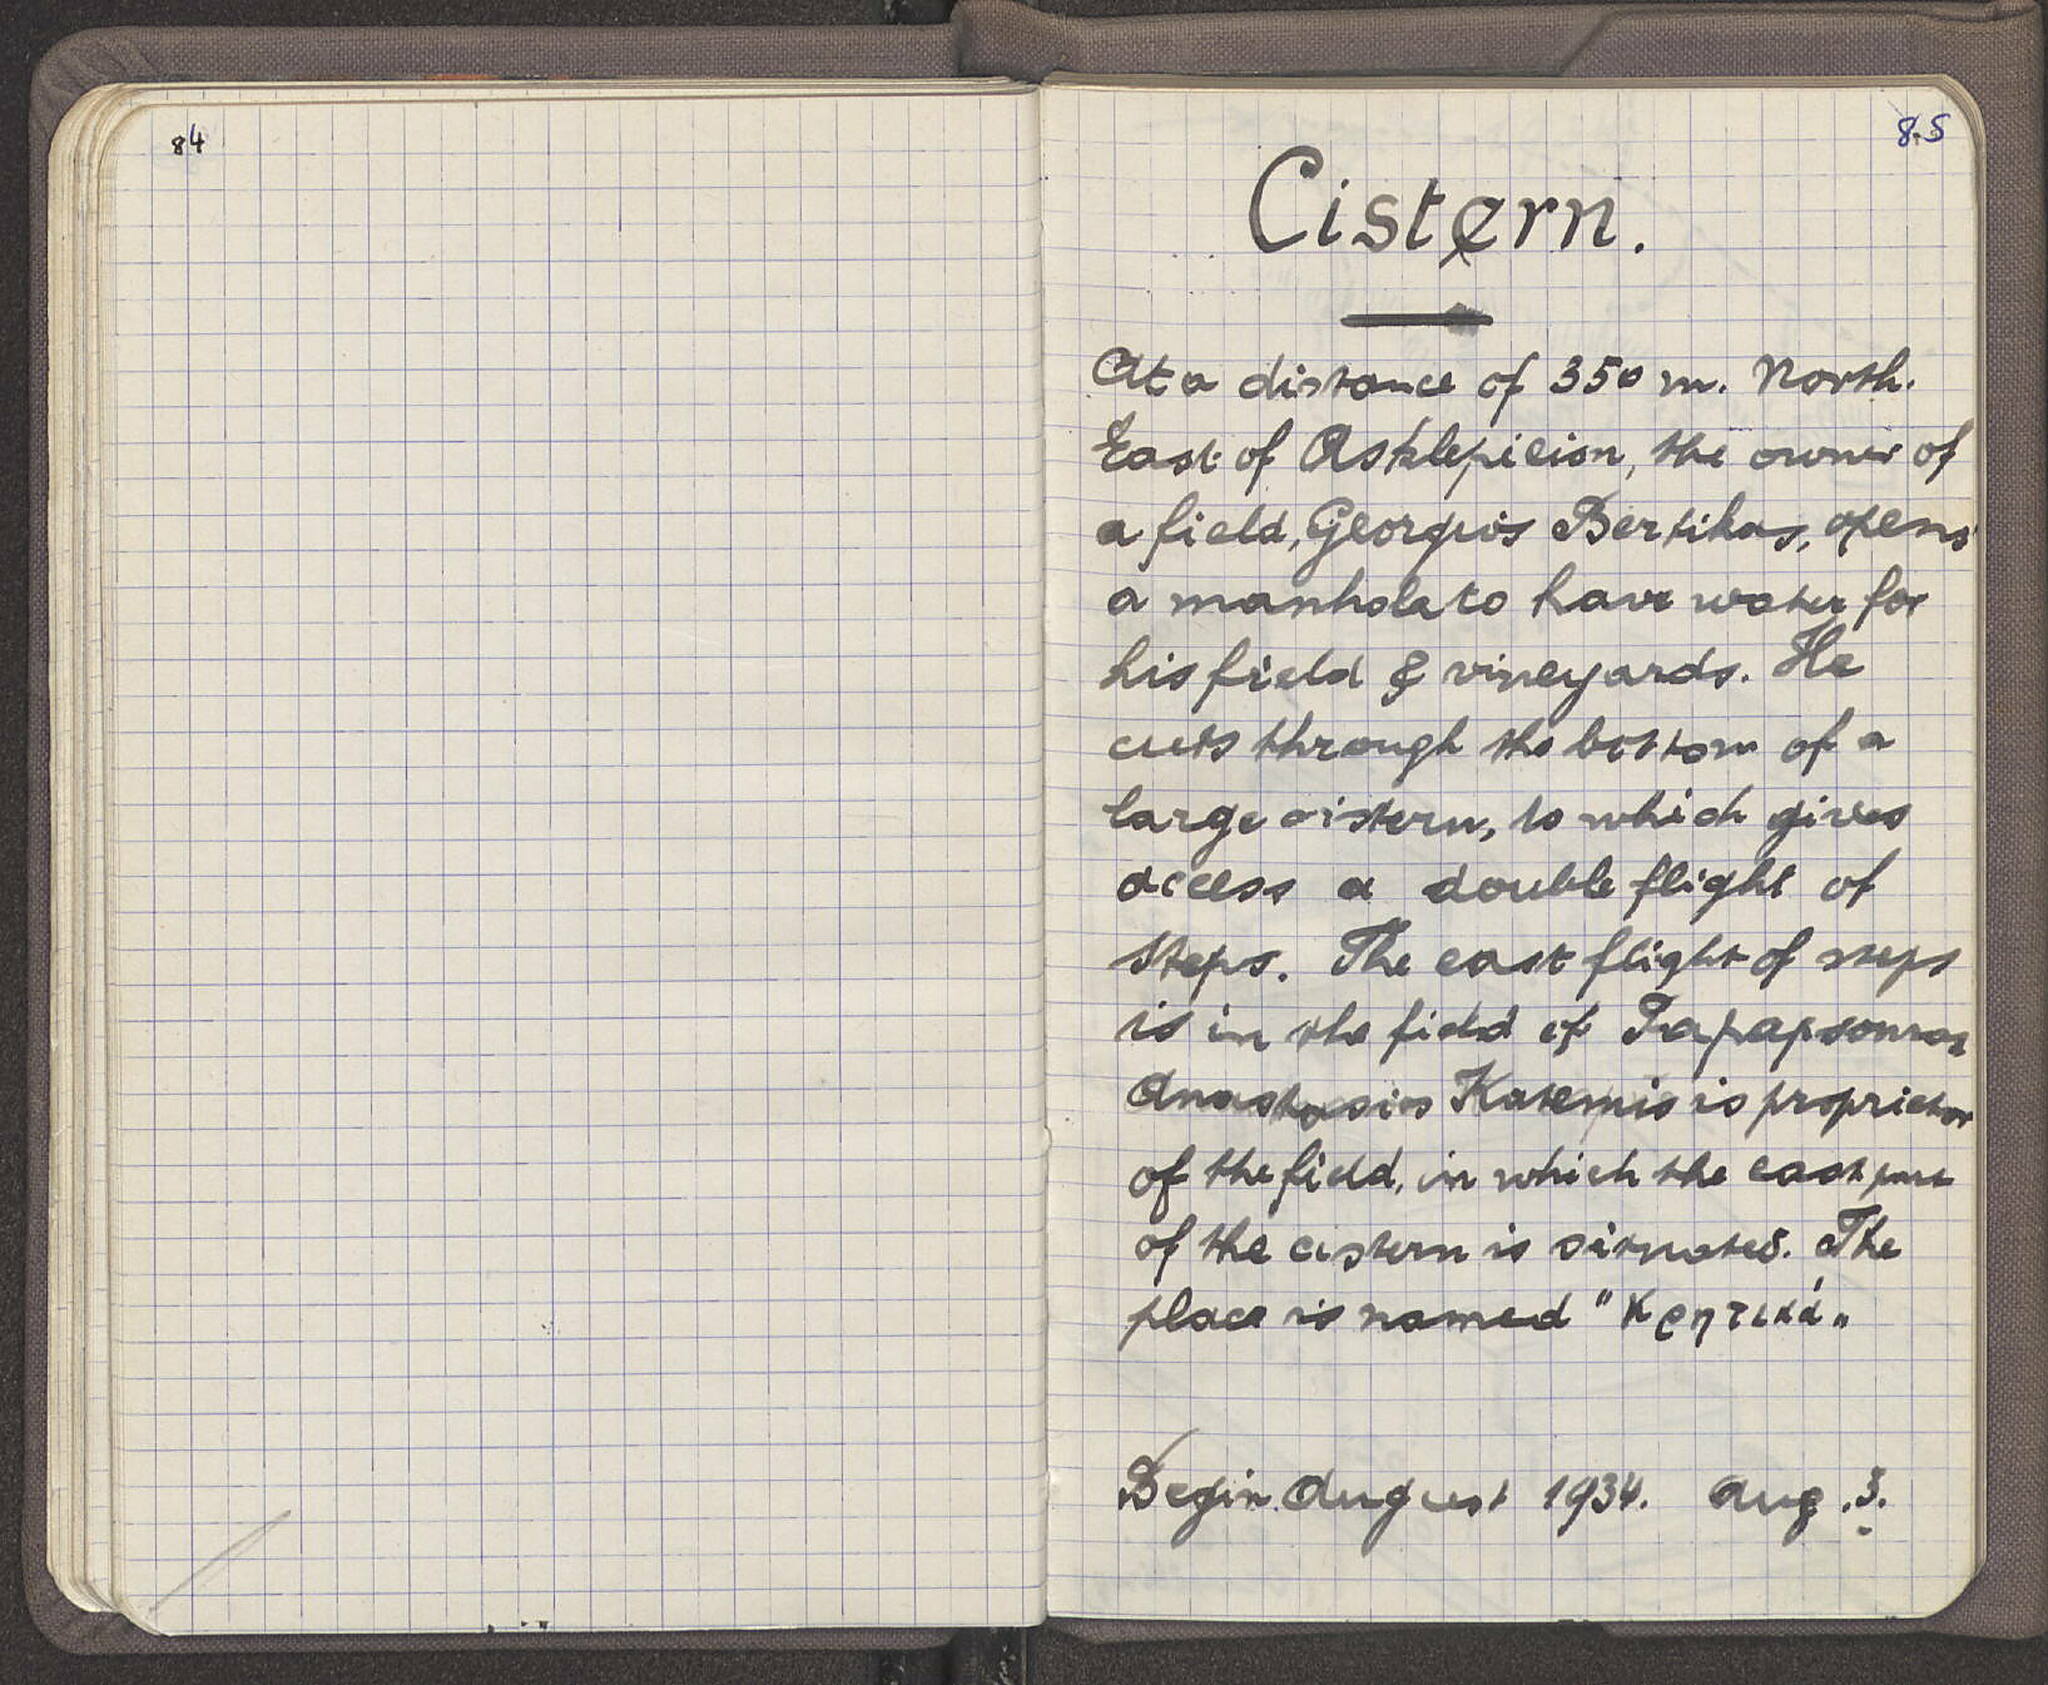 84
85
Cistern.
At a distance of 350 m. North.
East of Asklepieion, the owner of
a field, Georgios Bertikas, opens
a manhole to have water for
his field & vineyards. He
cuts through the bottom of a
large cistern, to which gives
access a double flight of
steps. The east flight of steps
is in the field of
Anastasios Katemis is proprietor
of the field, in which the east part
of the cistern is situated. The
place is named "Κρητικά„
Begin August 1934. Aug. 3.